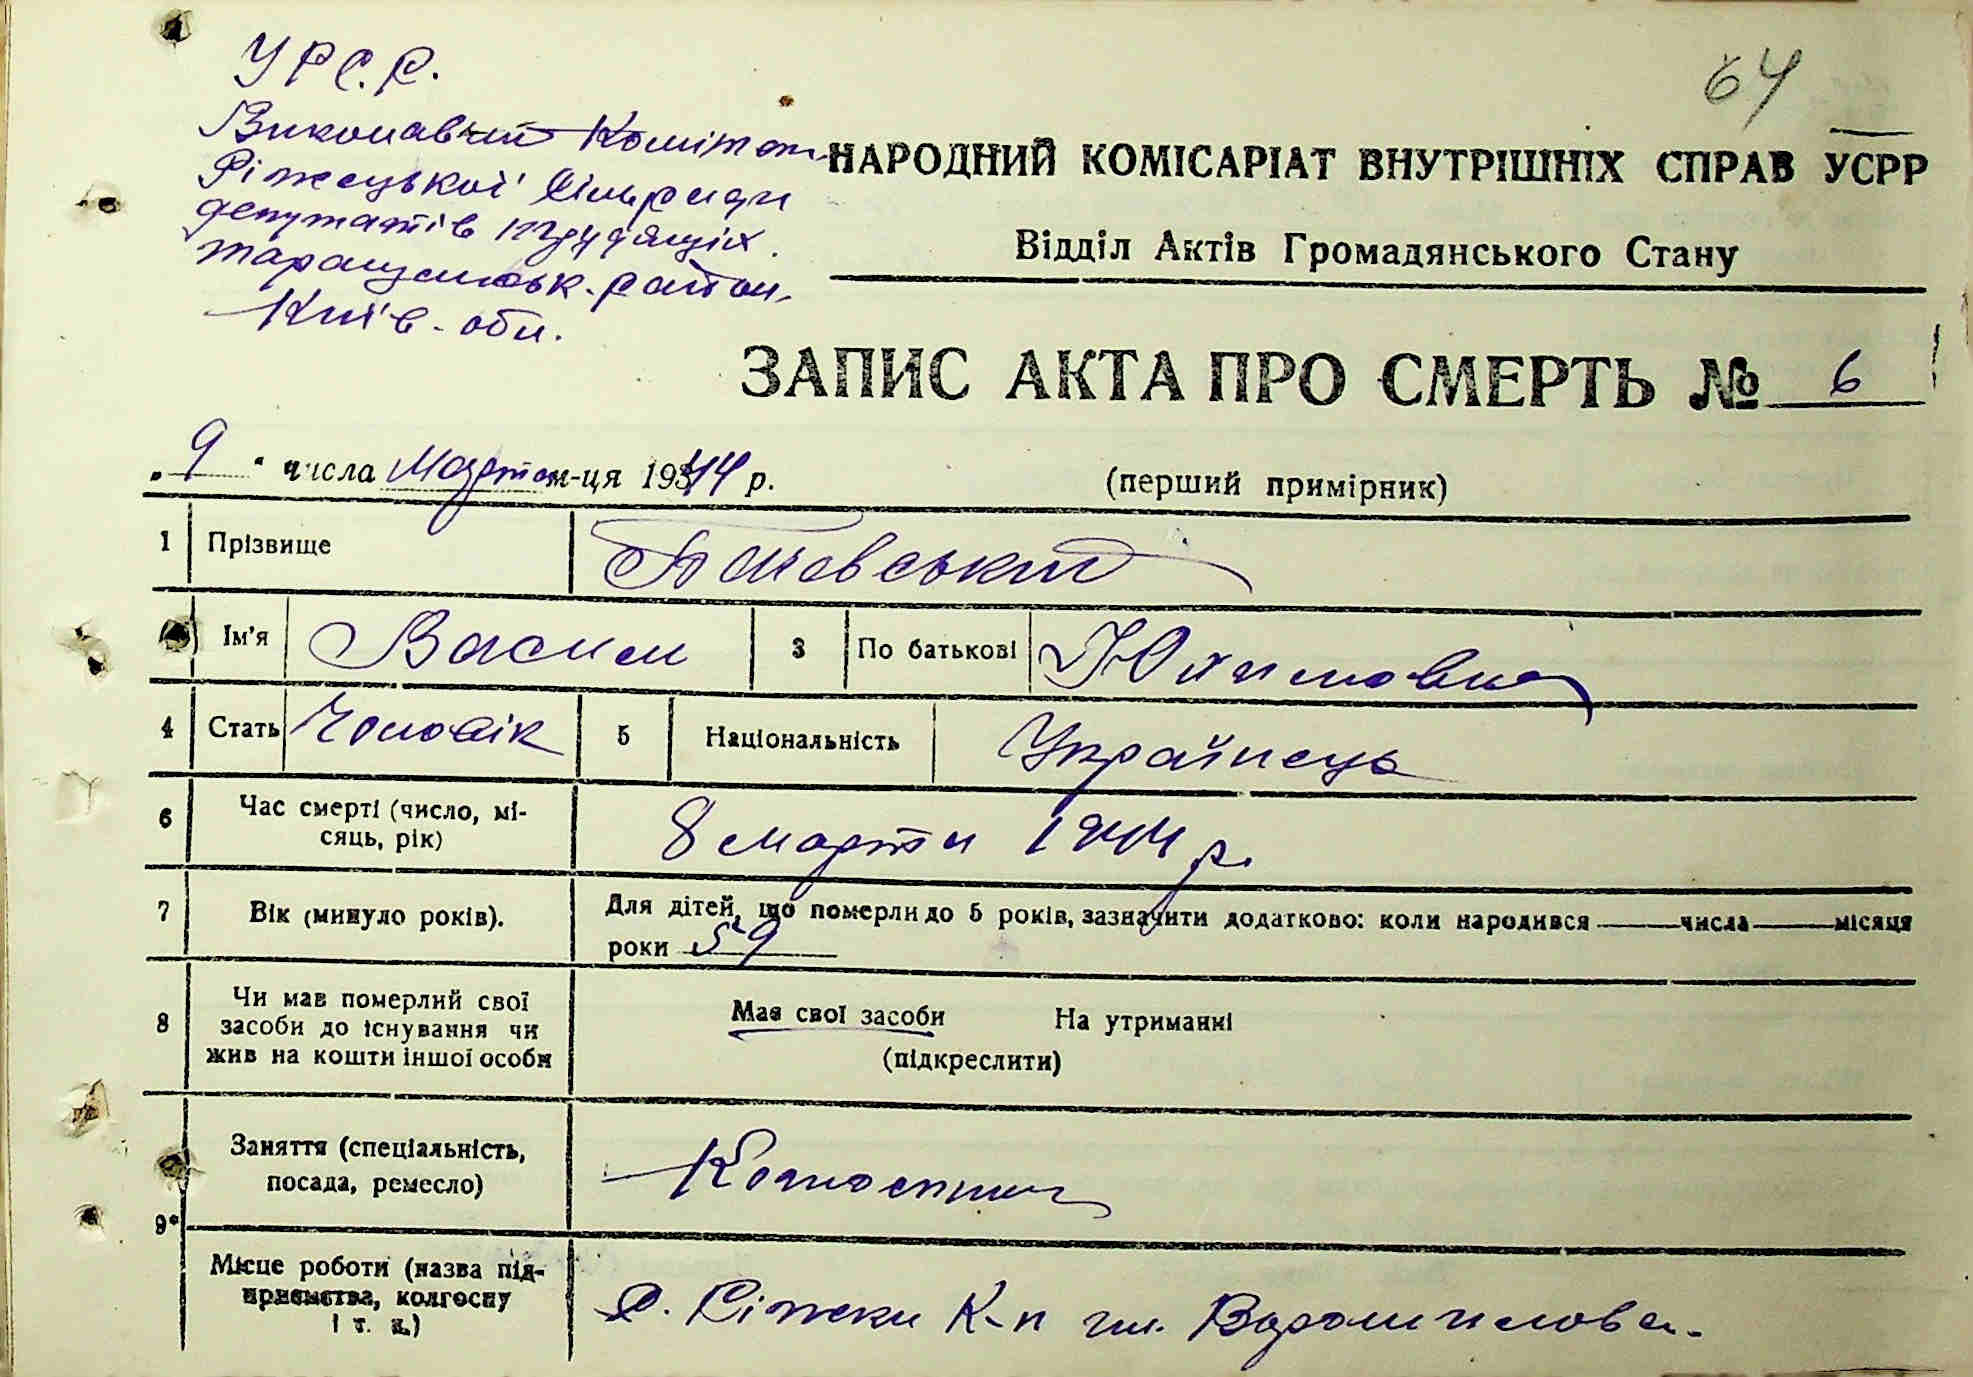 УРС.Р.
64
Виконавчий Комітет
Ріжецької Сільради
депутатів трудящих.
Таращанськ. район,
Київ. обл.
НАРОДНИЙ КОМІСАРІАТ ВНУТРІШНІХ СПРАВ УСРР
Відділ Актів Громадянського Стану
ЗАПИС АКТА ПРО СМЕРТЬ № 6
„ 9 " числа Марта м-ця 1944 р.
(перший примірник)
1 Прізвище
Ім'я Васил 3 По батькові Юхимович
4 Стать Чоловік 5 Національність Українець
6 Час смерті (число, мі-
сяць, рік) 8 марта 1944 р.
7 Вік (минуло років). Для дітей, що померли до 5 років, зазначити додатково: коли народився числа місяця
роки 59
8 Чи мав померлий свої
засоби до існування чи
жив на кошти іншої особи
Має свої засоби На утриманні
(підкреслити)
9*
Заняття (спеціальність,
посада, ремесло)
Місце роботи (назва під-
приємства, колгоспу
і т. и.)
с. Ріжки К-п ім. Ворошилова.